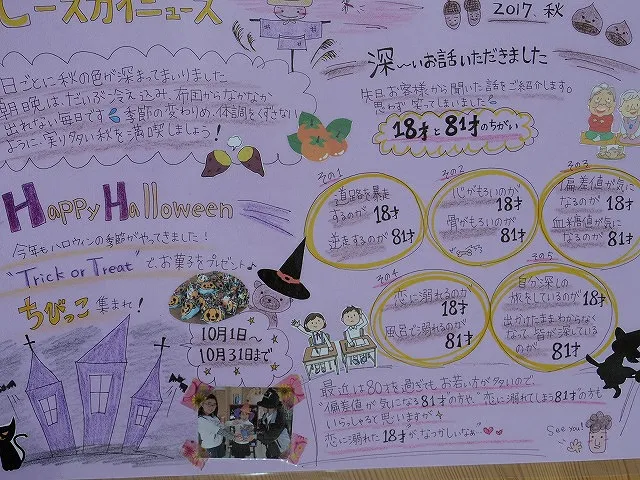 ピースカイニュース
2017、秋
日ごとに秋の色が深まってまいりました
朝晩は、だいぶ冷え込み、布団からなかなか
出れない毎日です 季節の変わりめ、体調をくずさない
ように、実り多い秋を満喫しましょう！
深〜いお話いただきました
先日お客様から聞いた話をご紹介します。
思わず笑ってしまいました
18才と81才のちがい
その1
道路を暴走
するのが 18才
逆走するのが 81才
その2
心がもろいのが
18才
骨がもろいのが
81才
その3
偏差値が気に
なるのが 18才
血糖値が気に
なるのが 81才
その4
恋に溺れるのが
18才
風呂で溺れるのが
81才
その5
自分探しの
旅をしているのが 18才
出かけたままわからなく
なって、皆が探している
のが 81才
Happy Halloween
今年もハロウィンの季節がやってきました！
"Trick or Treat"で、お菓子をプレゼント♪
ちびっこ 集まれ！
10月1日〜
10月31日まで
最近は80才を過ぎても、お若い方が多いので、
偏差値が気になる81才の方や、"恋に溺れてしまう81才"の方も
いらっしゃると思いますが
恋に溺れた18才が、なつかしいなぁ〜
See you!